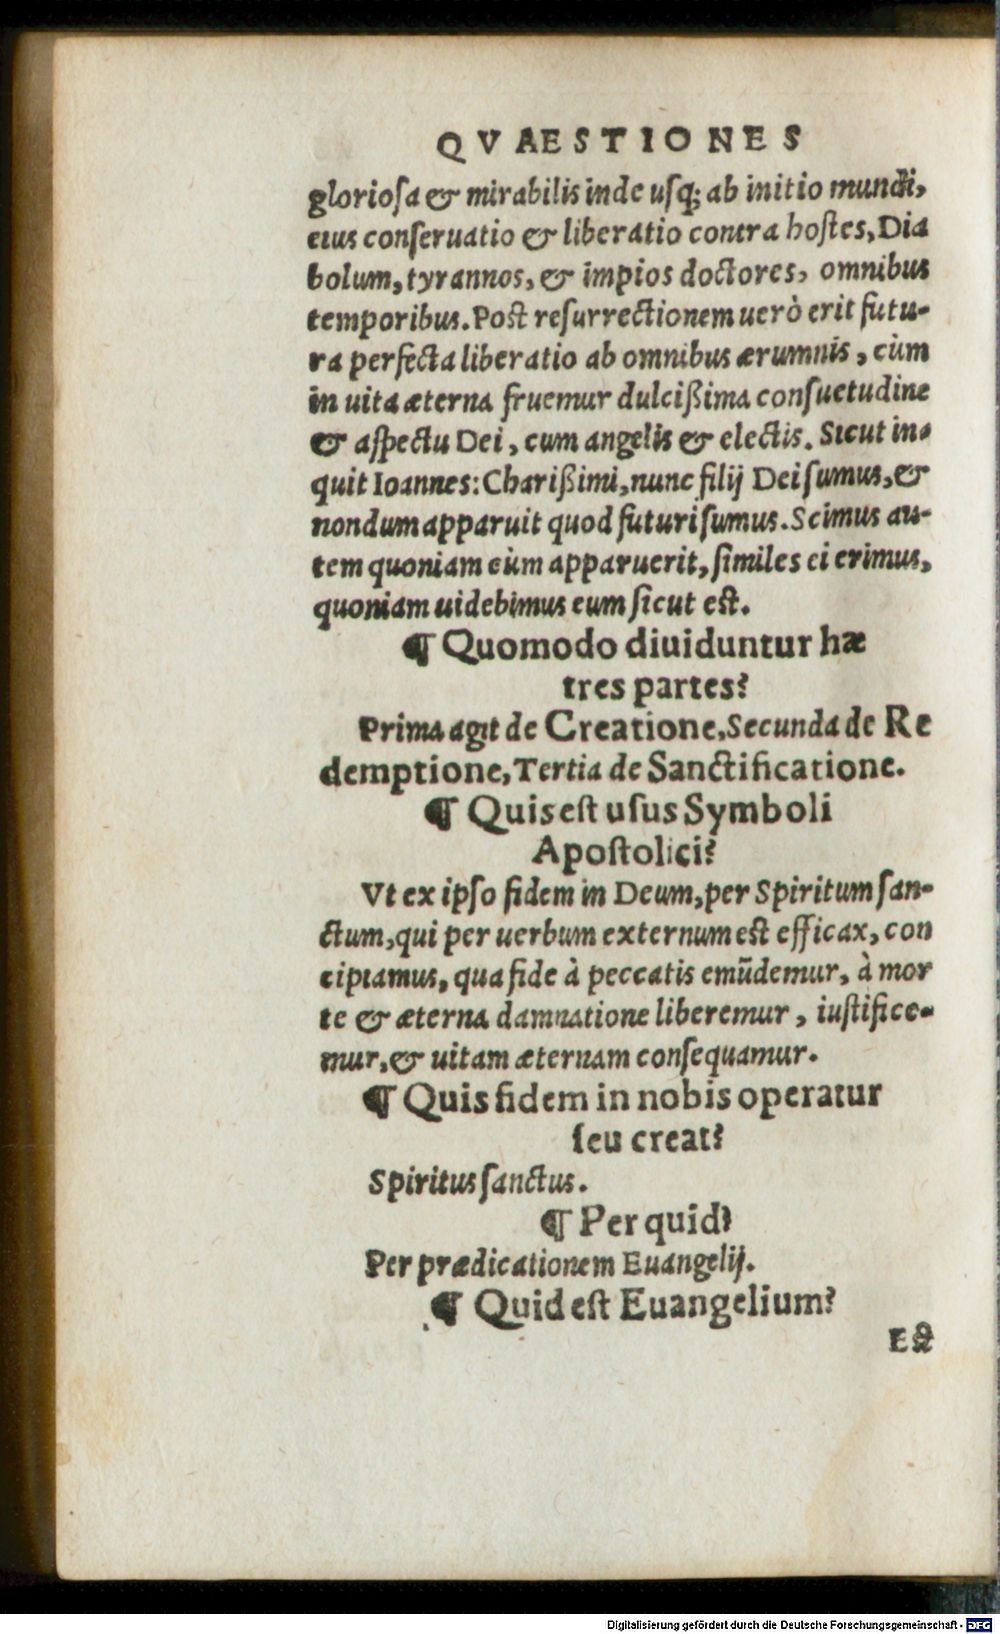 QVAESTIONES
gloriosa & mirabilis inde usq; ab initio mundi,
eius conseruatio & liberatio contra hostes, Dia
bolum, tyrannos, & impios doctores, omnibus
temporibus. Post resurrectionem uerò erit futu-
ra perfecta liberatio ab omnibus ærumnis, cùm
in uita æterna fruemur dulcißima consuetudine
& aspectu Dei, cum angelis & electis. Sicut in-
quit Ioannes: Charißimi, nunc filij Dei sumus, &
nondum apparuit quod futuri sumus. Scimus au-
tem quoniam cùm apparuerit, similes ei erimus,
quoniam uidebimus eum sicut est.
¶ Quomodo diuiduntur hæ
tres partes?
Prima agit de Creatione, Secunda de Re
demptione, Tertia de Sanctificatione.
¶ Quis est usus Symboli
Apostolici?
Vt ex ipso fidem in Deum, per Spiritum san-
ctum, qui per uerbum externum est efficax, con
cipiamus, qua fide à peccatis emũdemur, à mor
te & æterna damnatione liberemur, iustifice-
mur, & uitam æternam consequamur.
¶ Quis fidem in nobis operatur
seu creat?
Spiritus sanctus.
¶ Per quid?
Per prædicationem Euangelij.
¶ Quid est Euangelium?
Est
Digitalisierung gefördert durch die Deutsche Forschungsgemeinschaft - DFG